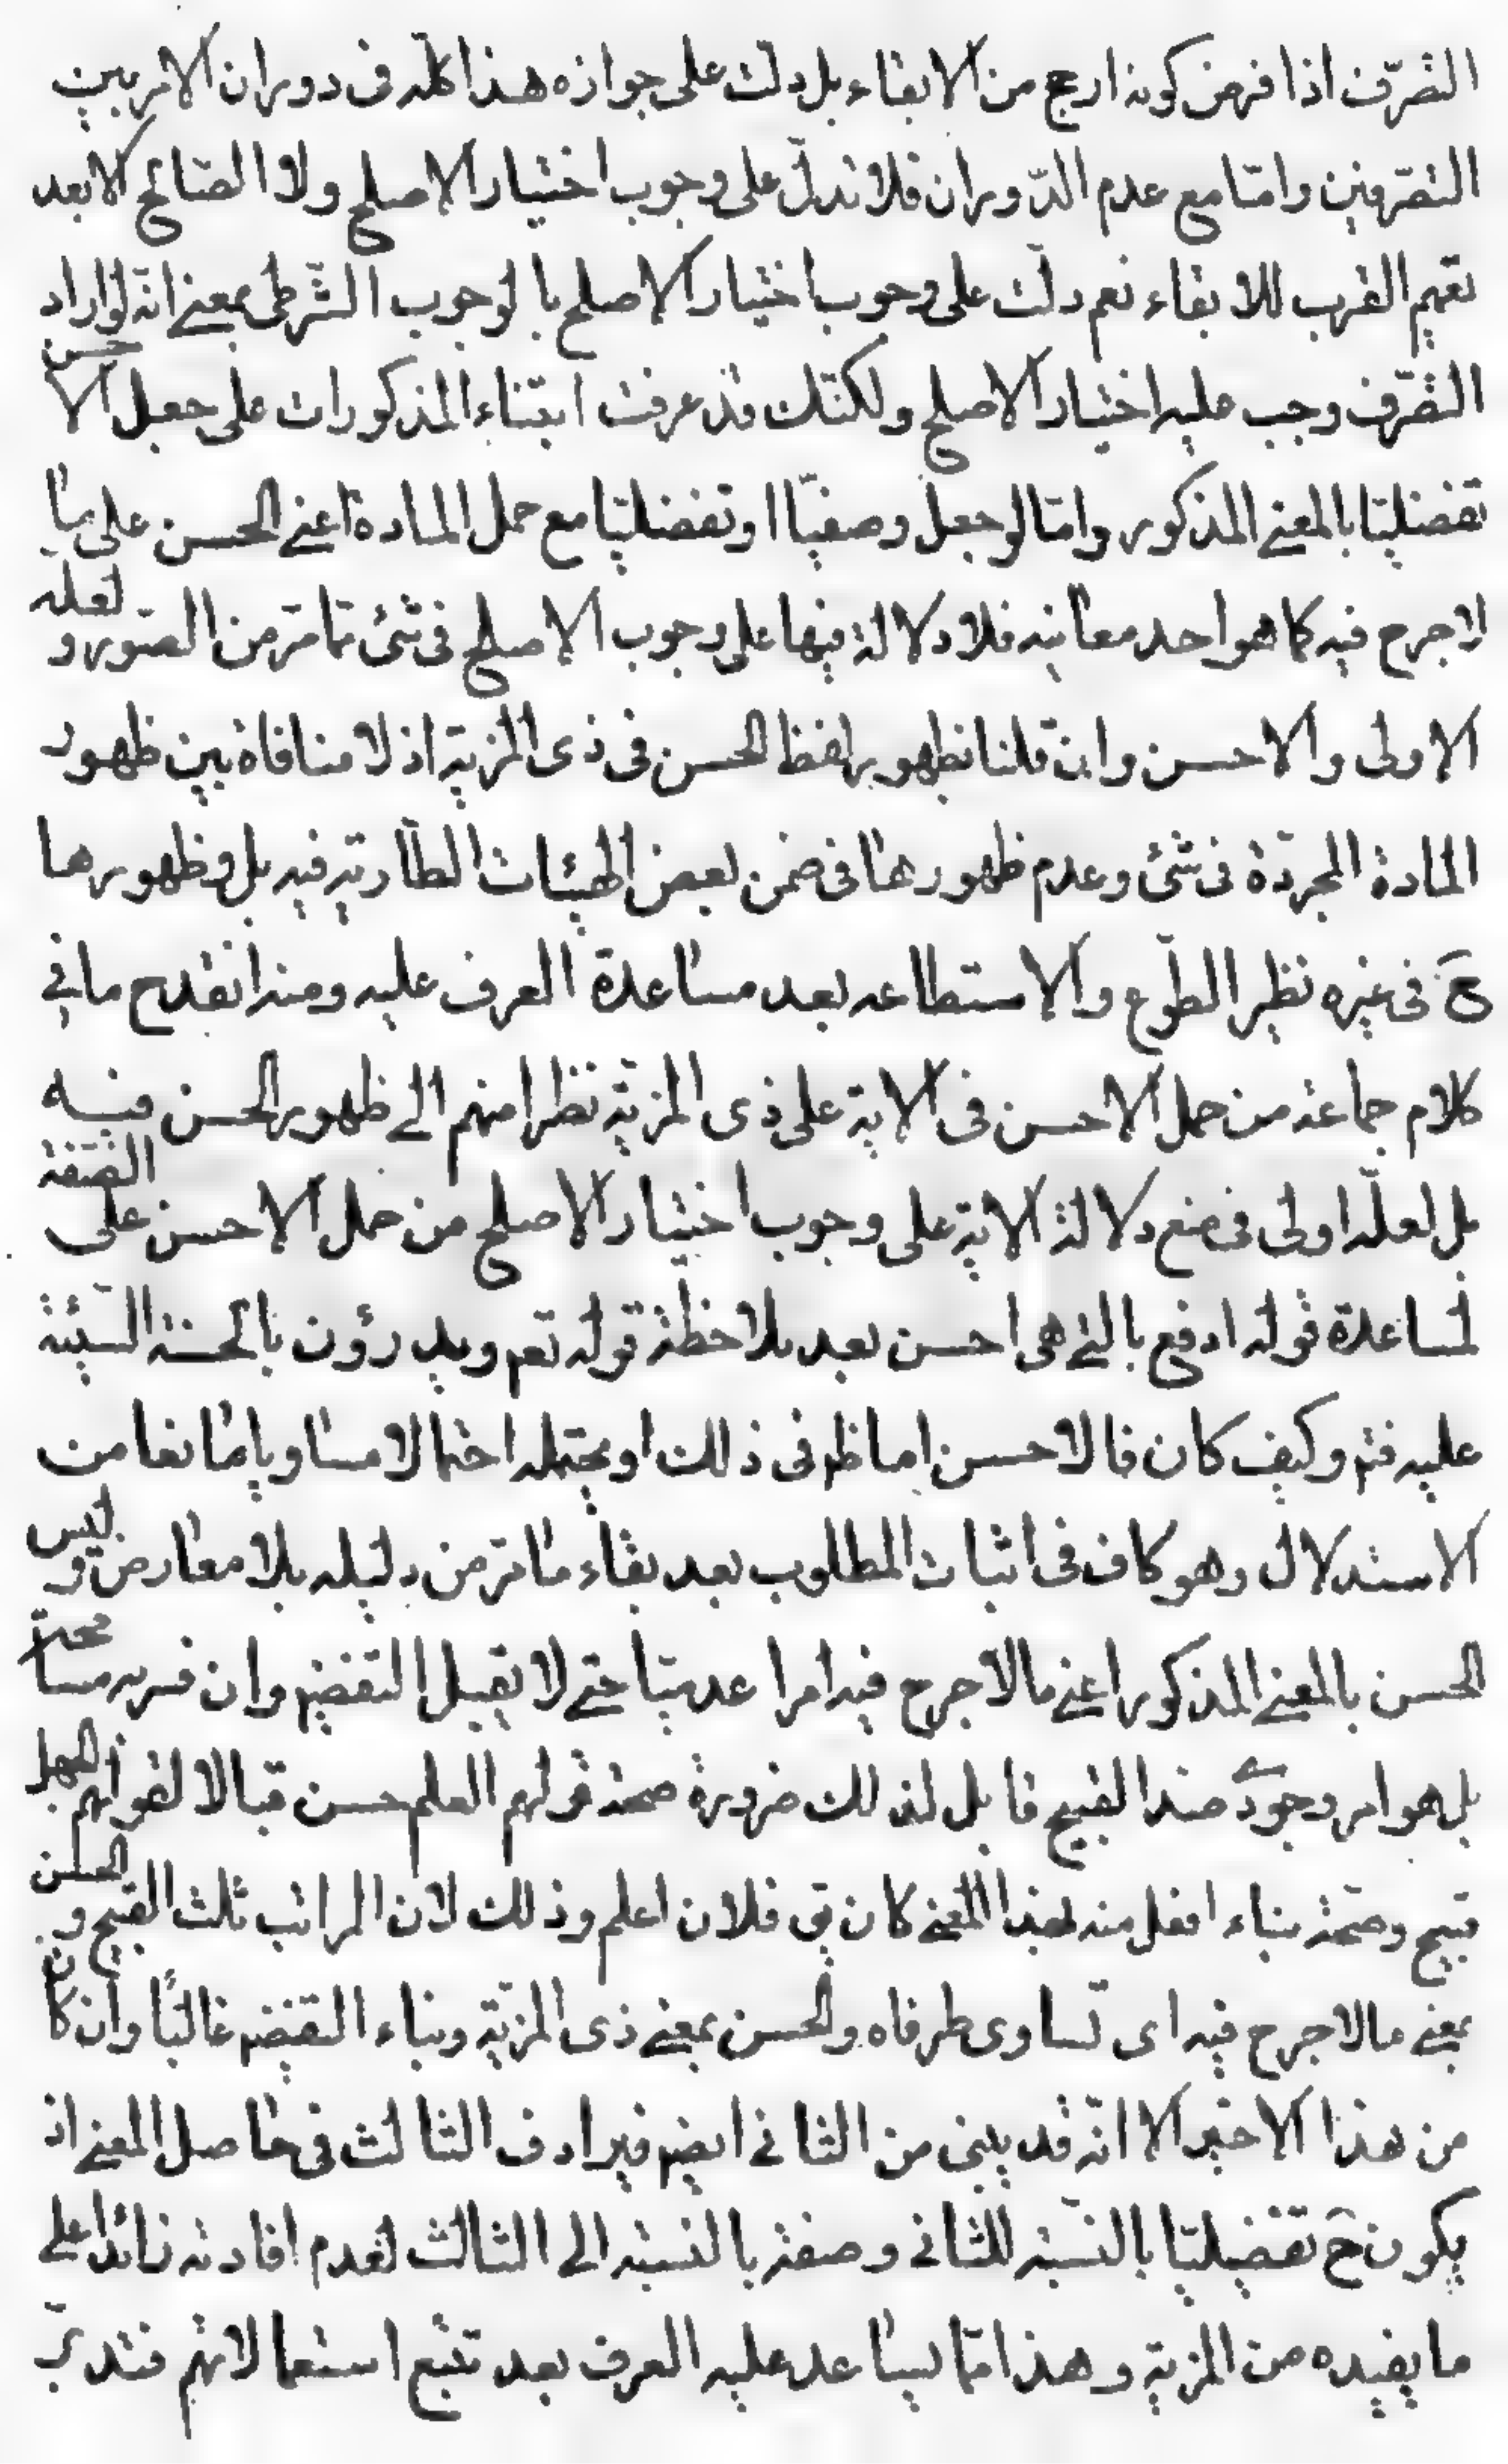 التصرّف اذا فرض كونه ارجح من الابقاء بل دلت على جوازه هذا كلّه فى دوران الامر بين
التصرّفين وامّا مع عدم الدّوران فلا تدلّ على وجوب اختيار الاصلح ولا الصّالح الا بعد
تعميم القرب للابقاء نعم دلّت على وجوب اختيار الاصلح بالوجوب الشّرطى بمعنے انّه لو اراد
التصرّف وجب عليه اختيار الاصلح ولكنّك قد عرفت ابتناء المذكورات على جعل الاحسن
تفضيليّا بالمعنے المذكور وامّا لو جعل وصفيّا او تفضيليّا مع حمل المادة اعنے الحسن على ما
لا حرج فيه كما هو احد معانيه فلا دلالة فيها على وجوب الاصلح فى شئ ممّا مرّ من الصّور ولعلّه
الاولى والاحسن وان قلنا بظهور لفظ الحسن فى ذى المزيّة اذ لا منافاة بين ظهور
المادة المجردّة فى شئ وعدم ظهورها فى ضمن بعض الهيئات الطّارية فيه بل وظهورها
ح فى غيره نظير الطّوع والاستطاعه بعد مساعدة العرف عليه ومنه انقدح ما فے
كلام جماعة من حمل الاحسن فى الاية على ذى المزيّة نظرا منهم الے ظهور الحسن فيه
بل لعلّه اولى فى منع دلالة الاية على وجوب اختيار الاصلح من حمل الاحسن على الصّفة
لمساعدة قوله ادفع بالتے هى احسن بعد ملاحظة قوله تعم ويدرؤن بالحسنة السّيئة
عليه فتم وكيف كان فالاحسن اما ظم فى ذلك او يحتمله احتمالا مساويا مانعا من
الاستدلال وهو كاف فى اثبات المطلوب بعد بقاء ما مرّ من دليله بلا معارض وليس
الحسن بالمعنے المذكور اعنے ما لا حرج فيه امرا عدميّا حتے لا يقبل التفضيم وان فسر به مسامحة
بل هو امر وجودى ضد القبيح قابل لذلك ضرورة صحة قولهم العلم حسن قبالا لقولهم الجهل
قبيح وصحّة بناء افعل منه لهذا المعنے كان يق فلان اعلم وذلك لان المراتب ثلث القبيح والحسن
بمعنے ما لا حرج فيه اى تساوى طرفاه والحسن بمعنے ذى المزيّة وبناء التفضيم غالبًا وان كان
من هذا الاخير الا انّه قد يبنى من الثانے ايضم فيرادف الثالث فى حاصل المعنے اذ
يكون ح تفضيليّا بالنّسبة للثانى وصفة بالنسبة الى الثالث لعدم افادته زائدا على
ما يفيده من المزية وهذا ممّا يساعد عليه العرف بعد تتبع استعمالاتهم فتدبّر